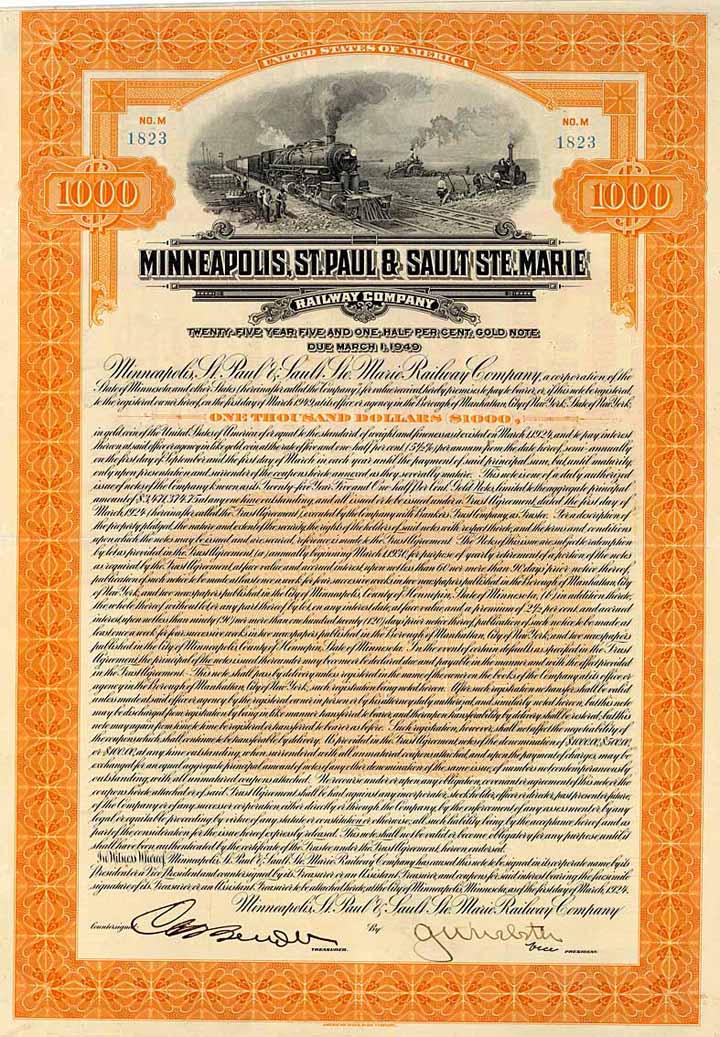 UNITED STATES OF AMERICA
NO. M
1823
NO. M
1823
1000
1000
MINNEAPOLIS, ST. PAUL & SAULT STE. MARIE
RAILWAY COMPANY
TWENTY-FIVE YEAR FIVE AND ONE-HALF PER CENT. GOLD NOTE
DUE MARCH 1, 1949
Minneapolis, St. Paul & Sault Ste. Marie Railway Company, a corporation of the
State of Minnesota and other States (hereinafter called the Company), for value received hereby promises to pay to bearer, or, if this note be registered,
to the registered owner hereof, on the first day of March 1949, at its office or agency in the Borough of Manhattan, City of New York, State of New York,
ONE THOUSAND DOLLARS $1000,
in gold coin of the United States of America of or equal to the standard of weight and fineness as it existed on March 1, 1924, and to pay interest
thereon at said office or agency in like gold coin at the rate of five and one-half per cent. (5½%) per annum from the date hereof, semi-annually
on the first day of September and the first day of March in each year until the payment of said principal sum, but, until maturity,
only upon presentation and surrender of the coupons hereto annexed as they severally mature. This note is one of a duly authorized
issue of notes of the Company known as its Twenty-Five Year Five and One Half Per Cent. Gold Notes, limited to the aggregate principal
amount of at any one time outstanding, and all issued or to be issued under a Trust Agreement, dated the first day of
March, 1924 (hereinafter called the Trust Agreement), executed by the Company with Bankers Trust Company, as Trustee. For a description of
the property pledged, the nature and extent of the security, the rights of the holders of said notes with respect thereto, and the terms and conditions
upon which the notes may be issued and are secured, reference is made to the Trust Agreement. The Notes of this issue are subject to redemption
by lot as provided in the Trust Agreement (a) annually beginning March 1, for purpose of yearly retirement of a portion of the notes
as required by the Trust Agreement, at face value and accrued interest, upon not less than 60 nor more than 90 days prior notice thereof,
publication of such notice to be made at least once a week for four successive weeks in two newspapers published in the Borough of Manhattan, City
of New York, and two newspapers published in the City of Minneapolis, County of Hennepin, State of Minnesota, (b) in addition thereto,
the whole thereof without lot, or any part thereof by lot, on any interest date, at face value, and a premium of 2½ per cent. and accrued
interest, upon not less than ninety (90) nor more than one hundred twenty (120) days prior notice thereof, publication of such notice to be made at
least once a week for four successive weeks in two newspapers published in the Borough of Manhattan, City of New York, and two newspapers
published in the City of Minneapolis, County of Hennepin, State of Minnesota. In the event of certain defaults as specified in the Trust
Agreement the principal of the notes issued thereunder may become or be declared due and payable in the manner and with the effect provided
in the Trust Agreement. This note shall pass by delivery unless registered in the name of the owner on the books of the Company at its office or
agency in the Borough of Manhattan, City of New York, such registration being noted hereon. After such registration no transfer shall be valid
unless made at said office or agency by the registered owner in person or by his attorney duly authorized, and similarly noted hereon, but this note
may be discharged from registration by being in like manner transferred to bearer, and thereupon transferability by delivery shall be restored, but this
note may again from time to time be registered or transferred to bearer as before. Such registration, however, shall not affect the negotiability of
the coupons which shall continue to be transferable by delivery. As provided in the Trust Agreement, notes of the denomination of $1000.00, $500.00,
or $100.00, at any time outstanding, when surrendered with all unmatured coupons attached, and upon the payment of charges, may be
exchanged for an equal aggregate principal amount of notes of any other denomination of the same issue, of number not contemporaneously
outstanding, with all unmatured coupons attached. No recourse under or upon any obligation, covenant or agreement of this note or the
coupons hereto attached or of said Trust Agreement shall be had against any incorporator, stockholder, officer or director, past, present or future,
of the Company or of any successor corporation either directly or through the Company, by the enforcement of any assessment or by any
legal or equitable proceeding by virtue of any statute or constitution or otherwise, all such liability being by the acceptance hereof and as
part of the consideration for the issue hereof expressly released. This note shall not be valid or become obligatory for any purpose until it
shall have been authenticated by the certificate of the Trustee under the Trust Agreement, hereon endorsed.
In Witness Whereof, Minneapolis, St. Paul & Sault Ste. Marie Railway Company has caused this note to be signed in its corporate name by its
President or a Vice President and countersigned by its Treasurer or an Assistant Treasurer, and coupons for said interest bearing the facsimile
signature of its Treasurer or an Assistant Treasurer to be attached hereto, at the City of Minneapolis, Minnesota, as of the first day of March, 1924.
Minneapolis, St. Paul & Sault Ste. Marie Railway Company
Countersigned
By
TREASURER.
Vice PRESIDENT.
AMERICAN BANK NOTE COMPANY.